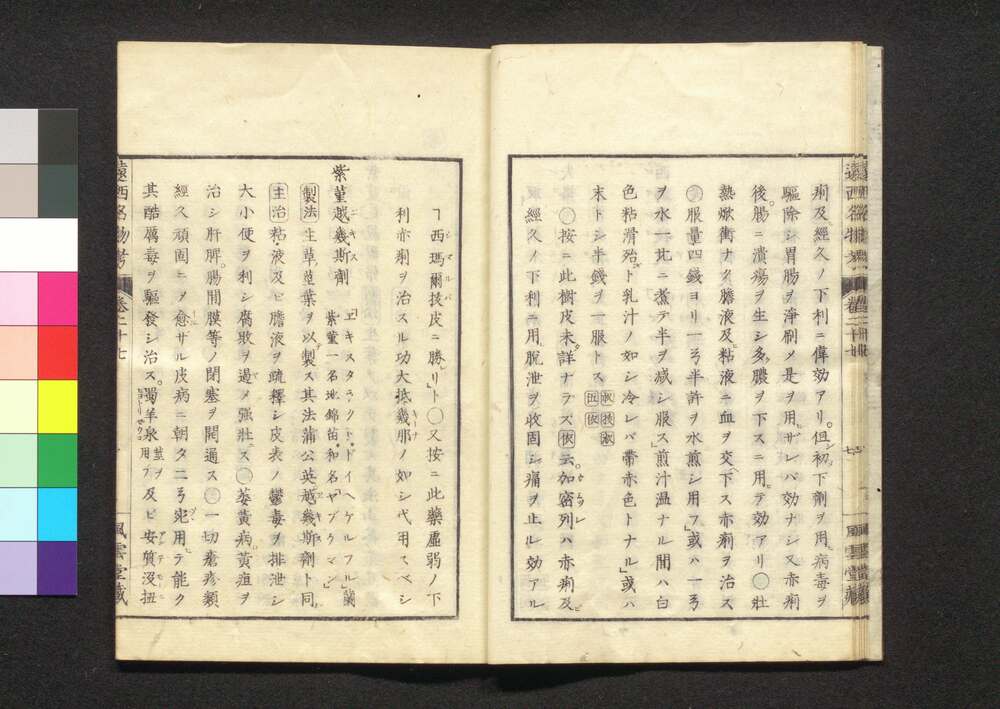 痢及經久ノ下利ニ偉効アリ但初下劑ヲ用病毒ヲ
驅除シ胃腸ヲ淨刷メ是ヲ用ザレバ効ナシ又赤痢
後腸ニ潰瘍ヲ生シ多膿ヲ下スニ用テ効アリ〇壯
熱嫰衝ナク膽液及粘液ニ血ヲ交下ス赤痢ヲ治ス
服量四錢ヨリ一弓半許ヲ水煎シ用フ或ハ一弓
ヲ水一比ニ煮テ半ヲ减シ服ス煎汁温ナル間ハ白
色粘滑殆ト乳汁ノ如シ冷レバ帶赤色トナル或ハ
末トシ半錢ヲ一服トス
〇按ニ此樹皮未詳ナラズ依云加密列ハ赤痢及
經久ノ下利ニ用脱泄ヲ收固シ痛ヲ止ル効アル
ヿ西瑪爾抜皮ニ勝レリト〇又按ニ此藥虚弱ノ下
利赤痢ヲ治スル功大抵幾那ノ如シ代用スベシ
紫菫越幾斯劑
ヱキスタラクト・ドイヘケルフル
紫菫一名地錦苗・和名ヤブケマン
製法 生草莖葉ヲ以製ス其法蒲公英越幾斯劑ト同
主治 粘液及ヒ膽液ヲ疏釋シ皮表ノ鬱毒ヲ排泄シ
大小便ヲ利シ腐敗ヲ遏メ強壯ニス 萎黄病黄疸ヲ
治シ肝脾腸間膜等ノ閉塞ヲ開通ス 一切瘡疹類
經久頑固ニメ愈サル皮病ニ朝夕二弓宛用テ能ク
其酷厲毒ヲ驅發シ治ス蜀羊泉 用フ及ビ安質没扭
遠西名物考 卷二十七
風雲堂藏